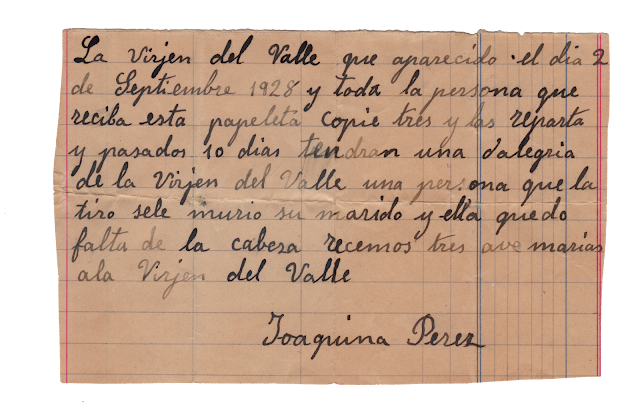 La Virjen del Valle que aparecido el dia 2
de Septiembre 1928 y toda la persona que
reciba esta papeleta copie tres y las reparta
y pasados 10 dias tendran una d'alegria
de la Virjen del Valle una persona que la
tiro sele murio su marido y ella quedo
falta de la cabeza recemos tres ave marias
ala Virjen del Valle
Joaquina Perez